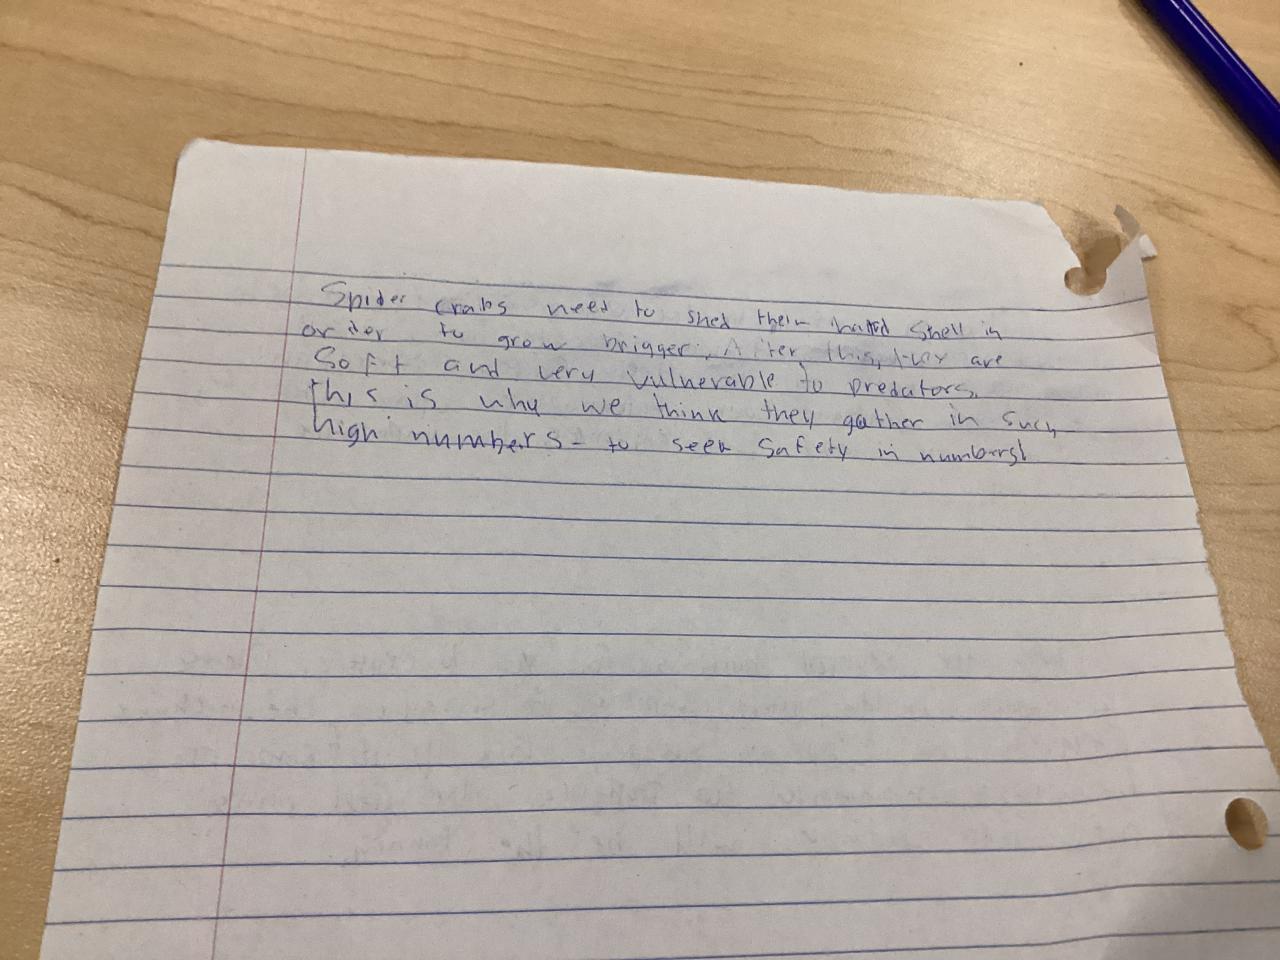 Spider crabs need to shed their hard shell in
order to grow brigger. After this, they are
soft and very vulnerable to predators.
this is why we think they gather in such
high numbers - to seek safety in numbers!